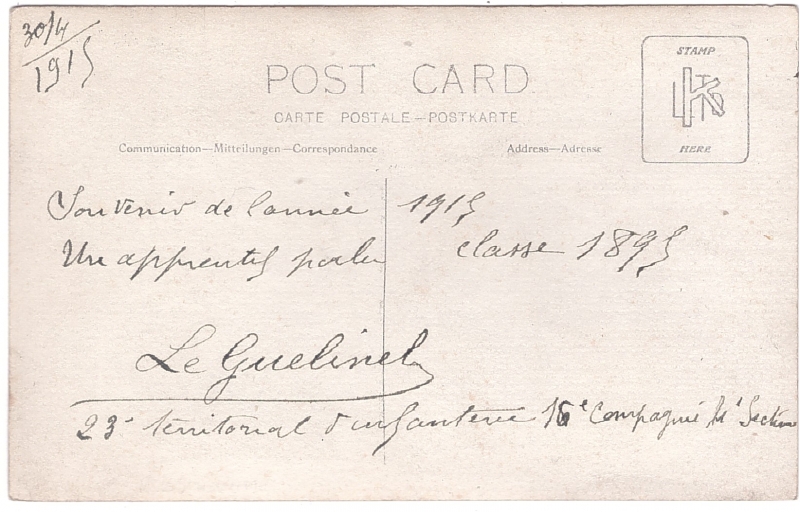 30/4
1915
POST CARD
STAMP
HERE
CARTE POSTALE—POSTKARTE
Communication—Mitteilungen—Correspondance
Address—Adresse
Souvenir de l'année 1915
Un apprentif poilu classe 1895
Le Guelinel
23e territorial d'infanterie 16e Compagnie Section